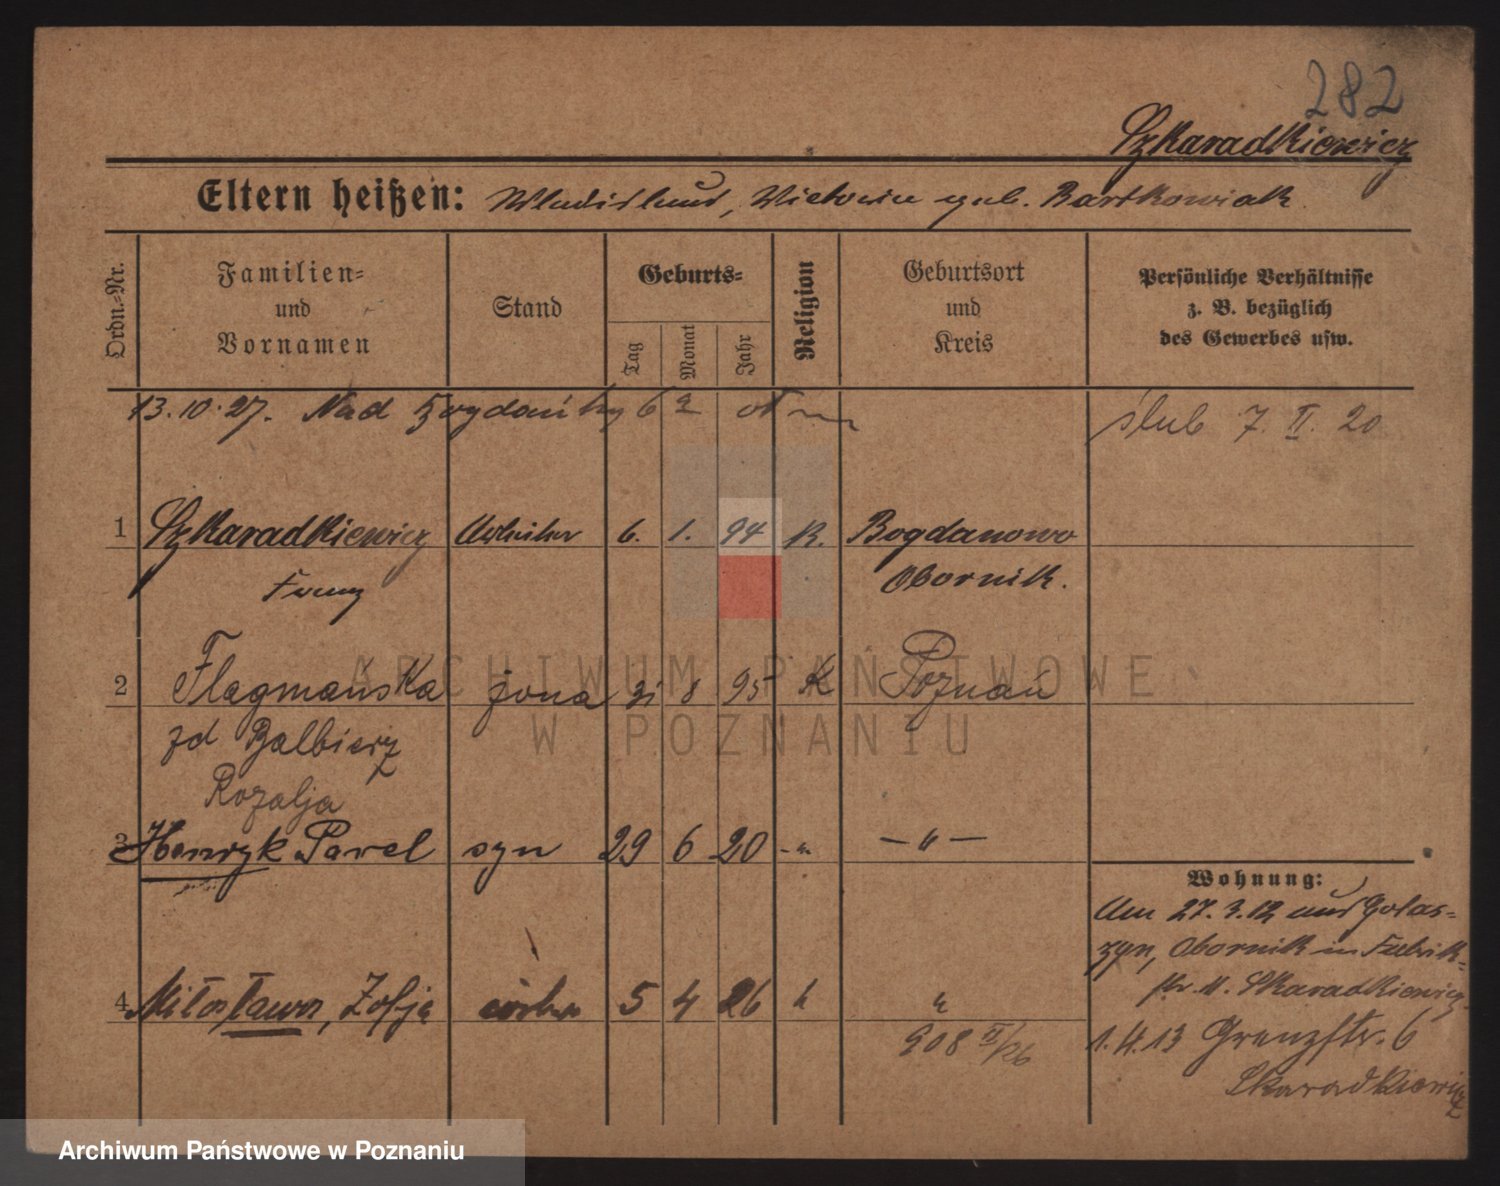 282
Szkaradkiewicz
Eltern heißen: Wladislaus, Victoria geb. Bartkowiak
Ordn.-Nr.
Familien- und Vornamen
Stand
Geburts-
Tag
Monat
Jahr
Religion
Geburtsort und Kreis
Persönliche Verhältnisse z. B. bezüglich des Gewerbes usw.
13.10.27. Nad Bogdanką 6
ślub 7. II. 20
1 Szkaradkiewicz Arbeiter 6. 1. 94 K. Bogdanowo
Franz Obornik.
2 Flagmańska żona 31 8 95 K Poznań
zd Balbierz
Rozalja
3 Henryk Pavel syn 29 6 20 -"- -"-
4 Miłosława, Zofja córka 5 4 26 " "
908 II/26
Wohnung:
Am 27.3.12 aus Golas-
zyn, Obornik in Fabrik-
str. 11. Skaradkiewicz
1.4.13 Grenzstr. 6
Skaradkiewicz
ARCHIWUM PAŃSTWOWE
W POZNANIU
Archiwum Państwowe w Poznaniu